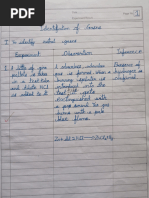 Identification of Gases
I. To identify metal gases
Experiment
Observation
Inference
1. A little of zinc
particles is taken
in a test-tube
and dilute HCl
is added to it
A colourless odourless
gas is formed when a
burning splinter is
introduced into the
test-tube gets
extinguished with
a pop sound. The gas
burns with a pale
blue flame.
Presence of
hydrogen is